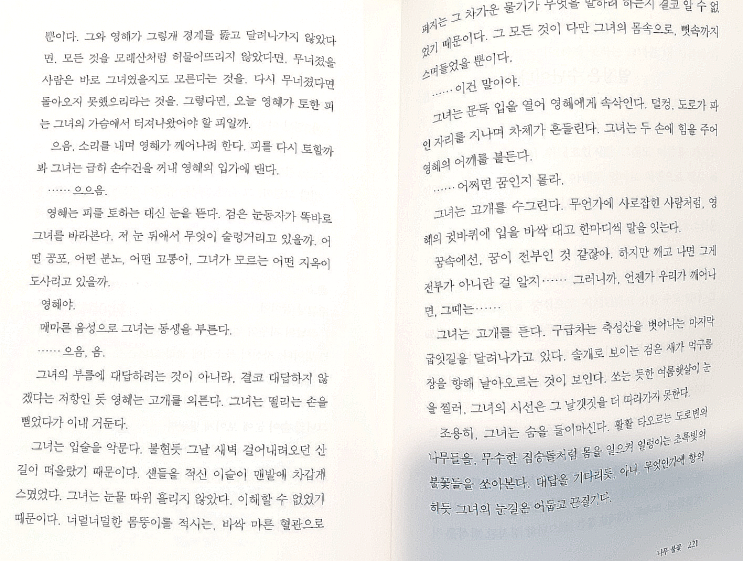 뿐이다. 그와 영혜가 그렇게 경계를 뚫고 달려나가지 않았다
면, 모든 것을 모래산처럼 허물어뜨리지 않았다면, 무너졌을
사람은 바로 그녀였을지도 모른다는 것을. 다시 무너졌다면
돌아오지 못했으리라는 것을. 그렇다면, 오늘 영혜가 토한 피
는 그녀의 가슴에서 터져나왔어야 할 피일까.
으음, 소리를 내며 영혜가 깨어나려 한다. 피를 다시 토할까
봐 그녀는 급히 손수건을 꺼내 영혜의 입가에 댄다.
……으으음.
영혜는 피를 토하는 대신 눈을 뜬다. 검은 눈동자가 똑바로
그녀를 바라본다. 저 눈 뒤에서 무엇이 술렁거리고 있을까. 어
떤 공포, 어떤 분노, 어떤 고통이, 그녀가 모르는 어떤 지옥이
도사리고 있을까.
영혜야.
메마른 음성으로 그녀는 동생을 부른다.
……으음, 음.
그녀의 부름에 대답하려는 것이 아니라, 결코 대답하지 않
겠다는 저항인 듯 영혜는 고개를 외튼다. 그녀는 떨리는 손을
뻗었다가 이내 거둔다.
그녀는 입술을 악문다. 불현듯 그날 새벽 걸어내려오던 산
길이 떠올랐기 때문이다. 샌들을 적신 이슬이 맨발에 차갑게
스몄었다. 그녀는 눈물 따위 흘리지 않았다. 이해할 수 없었기
때문이다. 너덜너덜한 몸뚱이를 적시는, 바싹 마른 혈관으로
퍼지는 그 차가운 물기가 무엇을 말하려 하는지 결코 알 수 없
었기 때문이다. 그 모든 것이 다만 그녀의 몸속으로, 뼛속까지
스며들었을 뿐이다.
……이건 말이야.
그녀는 문득 입을 열어 영혜에게 속삭인다. 덜컹, 도로가 파
인 자리를 지나며 차체가 흔들린다. 그녀는 두 손에 힘을 주어
영혜의 어깨를 붙든다.
……어쩌면 꿈인지 몰라.
그녀는 고개를 수그린다. 무언가에 사로잡힌 사람처럼, 영
혜의 귓바퀴에 입을 바싹 대고 한마디씩 말을 잇는다.
꿈속에선, 꿈이 전부인 것 같잖아. 하지만 깨고 나면 그게
전부가 아니란 걸 알지…… 그러니까, 언젠가 우리가 깨어나
면, 그때는……
그녀는 고개를 든다. 구급차는 축성산을 벗어나는 마지막
굽잇길을 달려나가고 있다. 솔개로 보이는 검은 새가 먹구름
장을 향해 날아오르는 것이 보인다. 쏘는 듯한 여름햇살이 눈
을 찔러, 그녀의 시선은 그 날갯짓을 더 따라가지 못한다.
조용히, 그녀는 숨을 들이마신다. 활활 타오르는 도로변의
나무들을, 무수한 짐승들처럼 몸을 일으켜 일렁이는 초록빛의
불꽃들을 쏘아본다. 대답을 기다리듯, 아니, 무엇인가에 항의
하듯 그녀의 눈길은 어둡고 끈질기다.
나무 불꽃 221